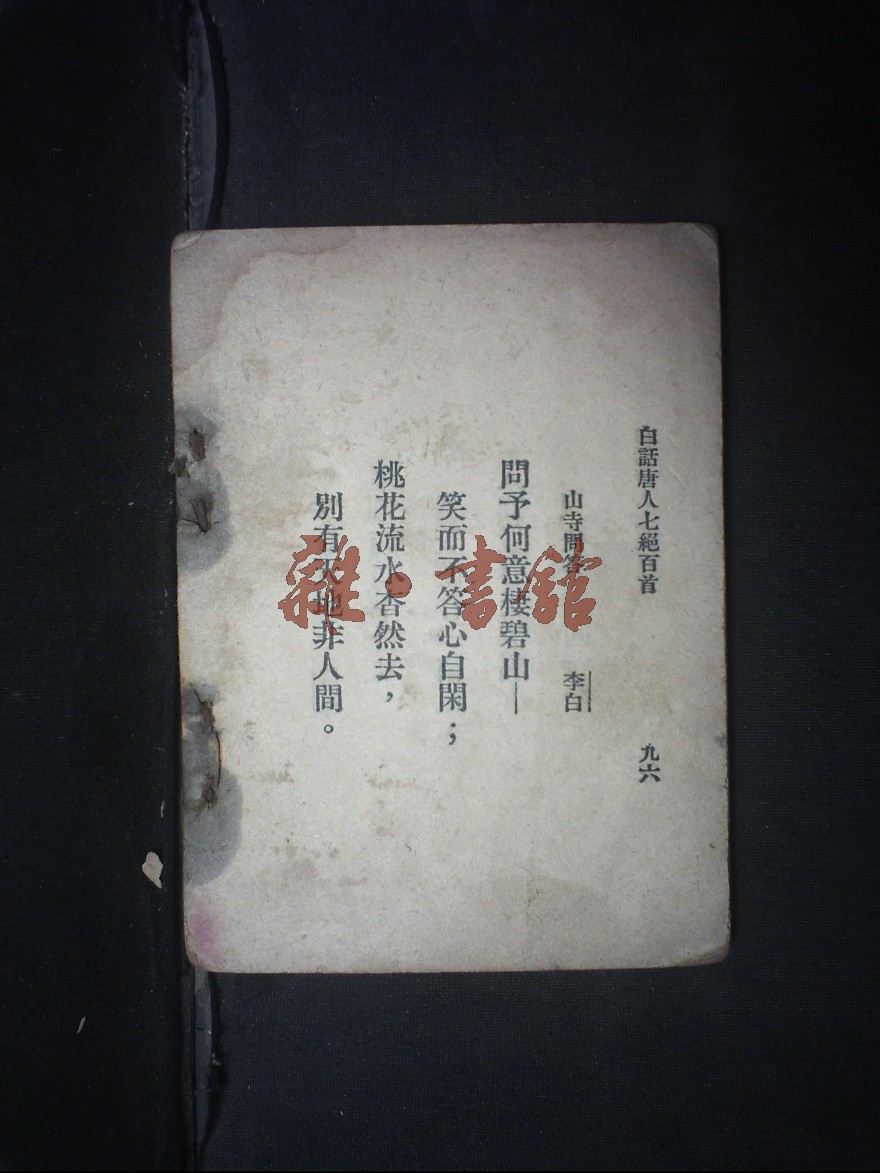 白話唐人七絕百首 九六
山寺問答 李白
問予何意棲碧山—
笑而不答心自閑；
桃花流水杳然去，
別有天地非人間。
雜·書館